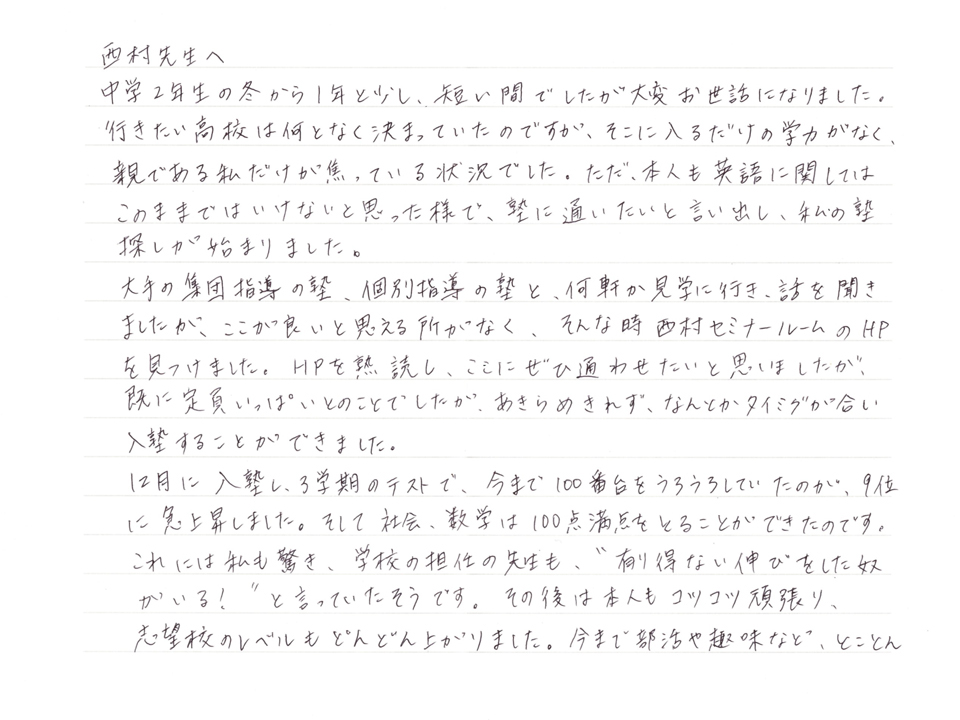 西村先生へ
中学2年生の冬から1年と少し、短い間でしたが大変お世話になりました。
行きたい高校は何となく決まっていたのですが、そこに入るだけの学力がなく、
親である私だけが焦っている状況でした。ただ、本人も英語に関しては
このままではいけないと思った様で、塾に通いたいと言い出し、私の塾
探しが始まりました。
大手の集団指導の塾、個別指導の塾と、何軒か見学に行き、話を聞き
ましたが、ここが良いと思える所がなく、そんな時西村セミナールームのHP
を見つけました。HPを熟読し、ここにぜひ通わせたいと思いましたが、
既に定員いっぱいとのことでしたが、あきらめきれず、なんとかタイミグが合い
入塾することができました。
12月に入塾し、3学期のテストで、今まで100番台をうろうろしていたのが、9位
に急上昇しました。そして社会、数学は100点満点をとることができたのです。
これには私も驚き、学校の担任の先生も、“有り得ない伸びをした奴
がいる!”と言っていたそうです。その後は本人もコツコツ頑張り、
志望校のレベルもどんどん上がりました。今まで部活や趣味など、とことん